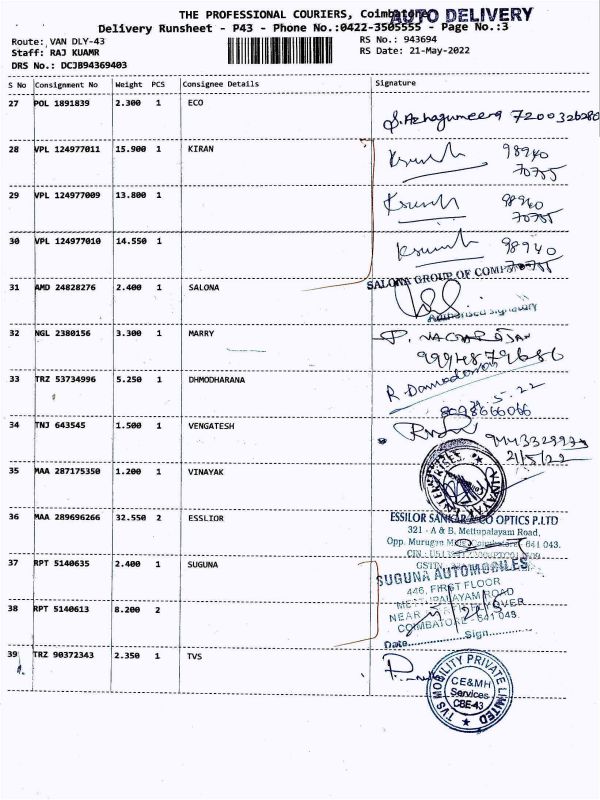 THE PROFESSIONAL COURIERS, Coimbatore
AUTO DELIVERY
Delivery Runsheet - P43 - Phone No.:0422-3505555 - Page No.:3
Route: VAN DLY-43 RS No.: 943694
Staff: RAJ KUAMR RS Date: 21-May-2022
DRS No.: DCJB94369403
S No Consignment No Weight PCS Consignee Details Signature
27 POL 1891839 2.300 1 ECO
S.Azhagumeera 7200326280
28 VPL 124977011 15.900 1 KIRAN
98940
70755
29 VPL 124977009 13.800 1
70755
30 VPL 124977010 14.550 1
98940
70755
31 AMD 24828276 2.400 1 SALONA
SALONA GROUP OF
Authorised Signatory
32 NGL 2380156 3.300 1 MARRY
P. NAGARAJAN
33 TRZ 53734996 5.250 1 DHMODHARANA
R. Damodaran
5.22
8098666066
34 TNJ 643545 1.500 1 VENGATESH
21/5/22
35 MAA 287175350 1.200 1 VINAYAK
VINAYAK ENTERPRISES
36 MAA 289696266 32.550 2 ESSLIOR
ESSILOR SANKAR & CO OPTICS P.LTD
321 - A & B, Mettupalayam Road,
Opp. Murugan Mills, Coimbatore - 641 043.
CIN
GSTIN
37 RPT 5140635 2.400 1 SUGUNA
SUGUNA AUTOMOBILES
446, FIRST FLOOR
METTUPALAYAM ROAD
38 RPT 5140613 8.200 2
NEAR
COIMBATORE - 641 043.
Date Sign
39 TRZ 90372343 2.350 1 TVS
TVS MOBILITY PRIVATE LIMITED
CE&MH
Services
CBE-43